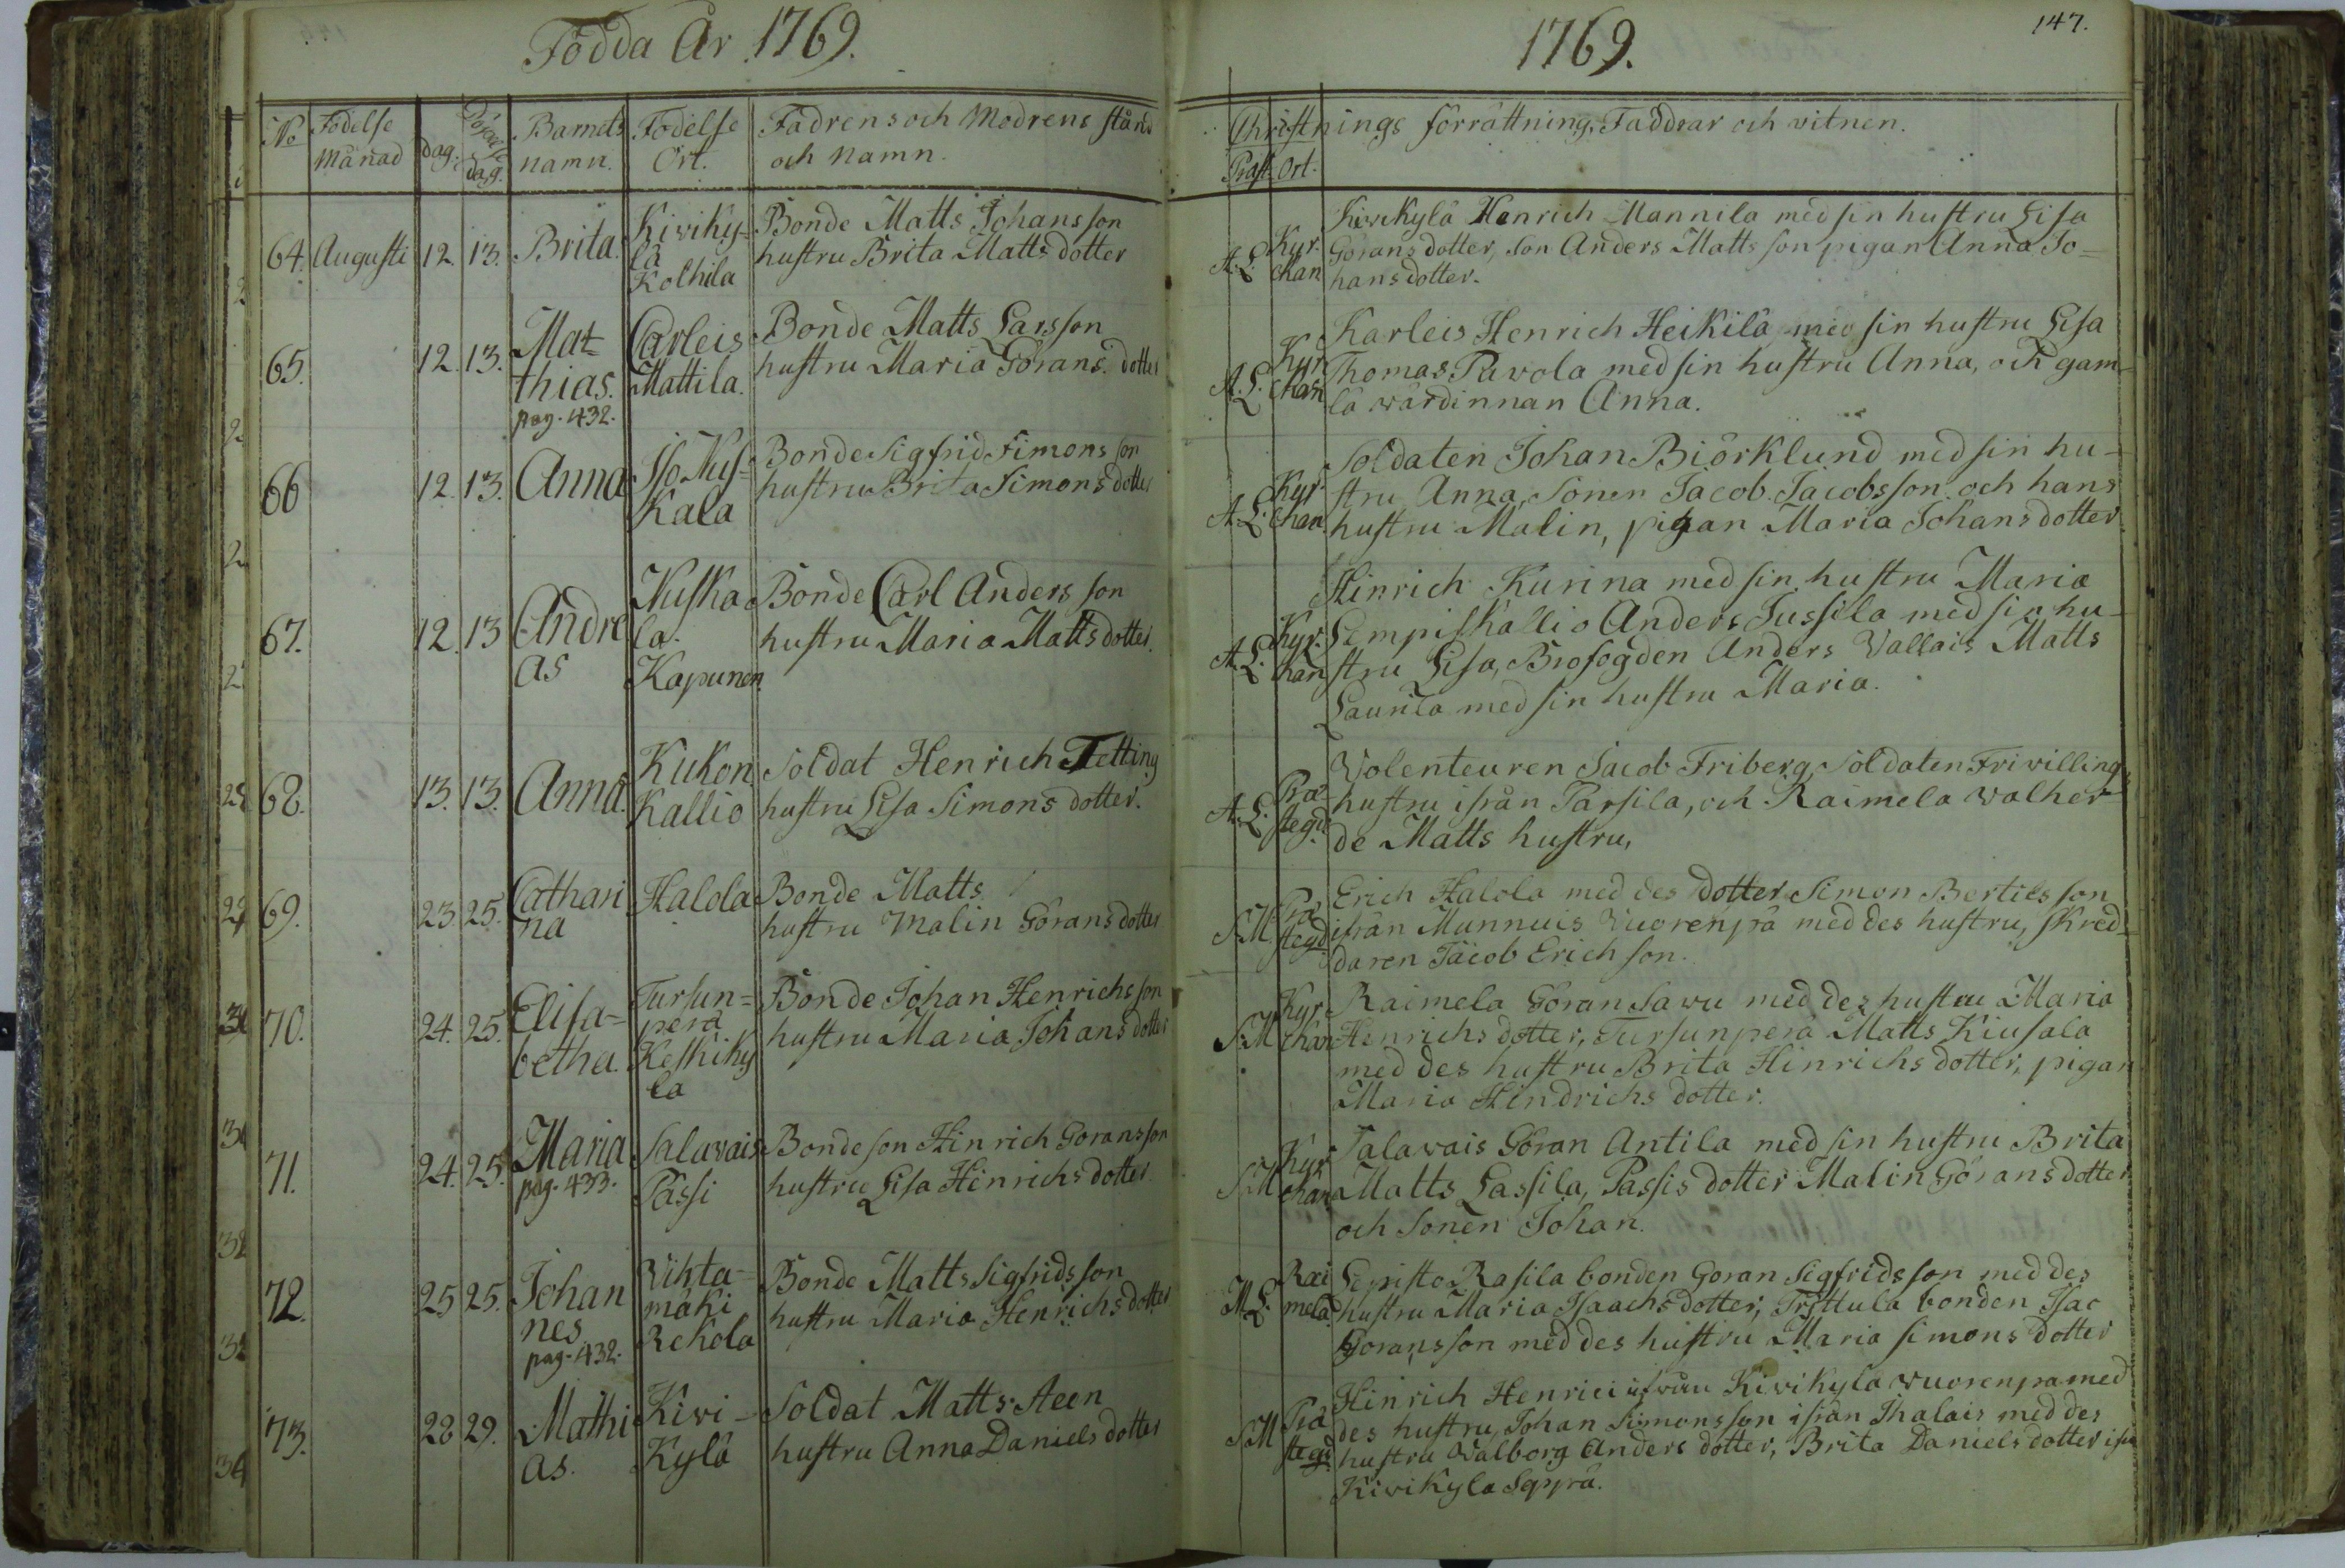 Födda År 1769.
No Födelse Månad dag. Döpelse dag. Barnets namn. Födelse Ort. Fadrens och Modrens stånd och namn.
64. Augusti 12. 13. Brita. Kiviky=
lä
Kolhila
Bonde Matts Johansson
hustru Brita Mattsdotter
65. 12. 13. Mat=
thias.
pag. 432.
Carleis
Mattila.
Bonde Matts Larsson
hustru Maria Görans dotter
66 12. 13. Anna Iso Kus=
kala
Bonde Sigfrid Simons son
hustru Brita Simons dotter
67. 12. 13 Andre
as
Kuska
la.
Kapunen
Bonde Carl Anders son
hustru Maria Matts dotter.
68. 13. 13. Anna. Kukon
Kallio
Soldat Henrich Tetting
hustru Lisa Simons dotter.
69. 23. 25. Cathari
na
Halola
Bonde Matts
hustru Malin Görans dotter
70. 24. 25. Elisa=
betha.
Tursun=
perä
Keskiky
la
Bonde Johan Henrichs son
hustru Maria Johans dotter
71. 24. 25. Maria
pag. 433.
Salavais
Passi
Bonde son Hinrich Göransson
hustru Lisa Hinrichs dotter
72. 25 25. Johan
nes.
pag. 432.
Vihta=
mäki
Rekola
Bonde Matts Sigfrids son
hustru Maria Henrichs dotter
73. 28 29. Mathi
as.
Kivi-
Kylä
Soldat Matts Steen
hustru Anna Daniels dotter
1769.
147.
Christnings förrättning, Faddrar och vitnen.
Präst. Ort.
A. L. Kyr
chan
Kivikylä Henrich Mannila med sin hustru Lisa
Görans dotter, Son Anders Matts son pigan Anna Jo=
hans dotter.
A. L. Kyr
chan
Karleis Henrich Heikilä med sin hustru Lisa
Thomas Pavola med sin hustru Anna, och gam-
la wärdinnan Anna.
A. L. Kyr
chan
Soldaten Johan Biörklund med sin hu-
stru Anna, Sonen Jacob Jacobsson och hans
hustru Malin, pigan Maria Johans dotter
A. L. Kyr.
chan
Hinrich Kurina med sin hustru Maria
Lempiskallio Anders Jussila med sin hu-
stru Lisa, Brofogden Anders Vallais Matts
Laurila med sin hustru Maria.
A. L. Præ-
stegd.
Volenteuren Jacob Friberg, Soldaten Frivillings
hustru ifrån Parsila, och Raimela walher-
de Matts hustru,
S. M. Præ
stegd
Erich Halola med des dotter Simon Bertils son
ifrån Munnuis Vuorenpä med des hustru, skred-
daren Jacob Erich son.
S. M Kyr
chan
Raimela Göran Savu med des hustru Maria
Henrichs dotter, Tursunperä Matts Kiusala
med des hustru Brita Hinrichs dotter, pigan
Maria Hindrichs dotter.
S. M Kyr
chan
Salavais Göran Antila med sin hustru Brita
Matts Lassila, Passis dotter Malin Görans dotter
och Sonen Johan.
M. L. Rai
mela
Lepistö Rasila bonden Göran Sigfridsson med des
hustru Maria Isaachs dotter, Trittula bonden Isac
Göransson med des hustru Maria Simons dotter
S. M Præ
stegd
Hinrich Henrici ifrån Kivikyla Vuorenpä med
des hustru, Johan Simonsson ifrån Ihalais med des
hustru Walborg Anders dotter, Brita Daniels dotter ifrå
Kivikyla Seppä.